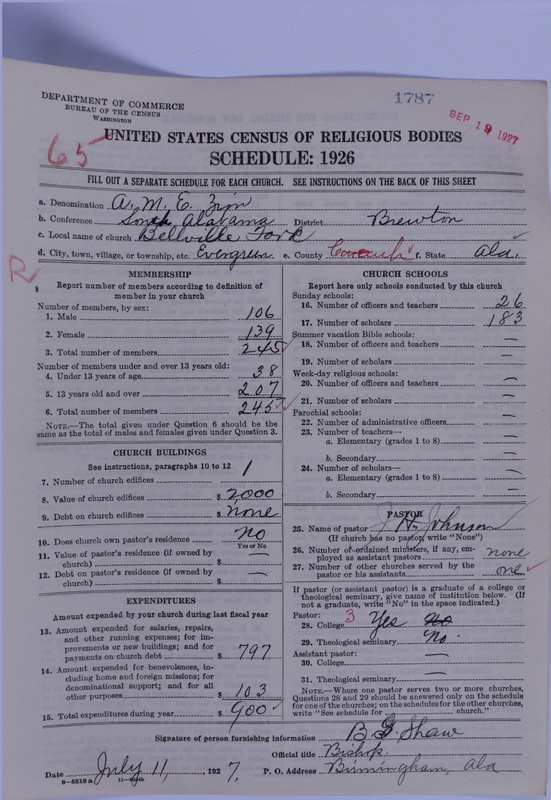 1787
DEPARTMENT OF COMMERCE
BUREAU OF THE CENSUS
WASHINGTON
SEP 19 1927
65
UNITED STATES CENSUS OF RELIGIOUS BODIES
SCHEDULE: 1926
FILL OUT A SEPARATE SCHEDULE FOR EACH CHURCH. SEE INSTRUCTIONS ON THE BACK OF THIS SHEET
a. Denomination A. M. E. Zion
b. Conference South Alabama District Brewton
c. Local name of church Bellville Fork
d. City, town, village, or township, etc. Evergreen e. County f. State Ala.
R
MEMBERSHIP
Report number of members according to definition of
member in your church
Number of members, by sex:
1. Male 106
2. Female 139
3. Total number of members 245
Number of members under and over 13 years old:
4. Under 13 years of age 38
5. 13 years old and over 207
6. Total number of members 245
NOTE.—The total given under Question 6 should be the
same as the total of males and females given under Question 3.
CHURCH BUILDINGS
See instructions, paragraphs 10 to 12
7. Number of church edifices 1
8. Value of church edifices $ 2,000
9. Debt on church edifices $ none
10. Does church own pastor's residence? no
Yes or No
11. Value of pastor's residence (if owned by
church) $ —
12. Debt on pastor's residence (if owned by
church) $ —
EXPENDITURES
Amount expended by your church during last fiscal year
13. Amount expended for salaries, repairs,
and other running expenses; for im-
provements or new buildings; and for
payments on church debt $ 797
14. Amount expended for benevolences, in-
cluding home and foreign missions; for
denominational support; and for all
other purposes $ 103
15. Total expenditures during year $ 900
CHURCH SCHOOLS
Report here only schools conducted by this church
Sunday schools:
16. Number of officers and teachers 26
17. Number of scholars 183
Summer vacation Bible schools:
18. Number of officers and teachers —
19. Number of scholars —
Week-day religious schools:
20. Number of officers and teachers —
21. Number of scholars —
Parochial schools:
22. Number of administrative officers —
23. Number of teachers—
a. Elementary (grades 1 to 8) —
b. Secondary —
24. Number of scholars—
a. Elementary (grades 1 to 8) —
b. Secondary —
PASTOR
25. Name of pastor J. H. Johnson
(If church has no pastor, write "None")
26. Number of ordained ministers, if any, em-
ployed as assistant pastors none
27. Number of other churches served by the
pastor or his assistants one
If pastor (or assistant pastor) is a graduate of a college or
theological seminary, give name of institution below. (If
not a graduate, write "No" in the space indicated.)
Pastor:
28. College 3 Yes No
29. Theological seminary No.
Assistant pastor:
30. College —
31. Theological seminary —
NOTE.—Where one pastor serves two or more churches,
Questions 28 and 29 should be answered only on the schedule
for one of the churches; on the schedules for the other churches,
write "See schedule for church."
Signature of person furnishing information B. G. Shaw
Official title Bishop.
Date July 11, 1927. P. O. Address Birmingham, Ala
8—5518 a